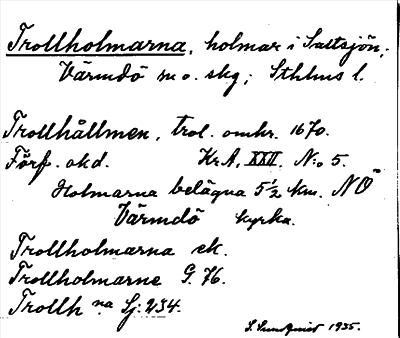 Trollholmarna, holmar i Saltsjön,
Värmdö sn o. skg; Sthlms l.
Trollhållmen, trol. omkr. 1670.
Förf. okd. Kr.A. XXII. N:o 5.
Holmarna belägna 5½ km. NÖ
Värmdö kyrka.
Trollholmarna ek.
Trollholmarne G. 76.
Trollh na Sj: 234.
S. Sundquist 1935.